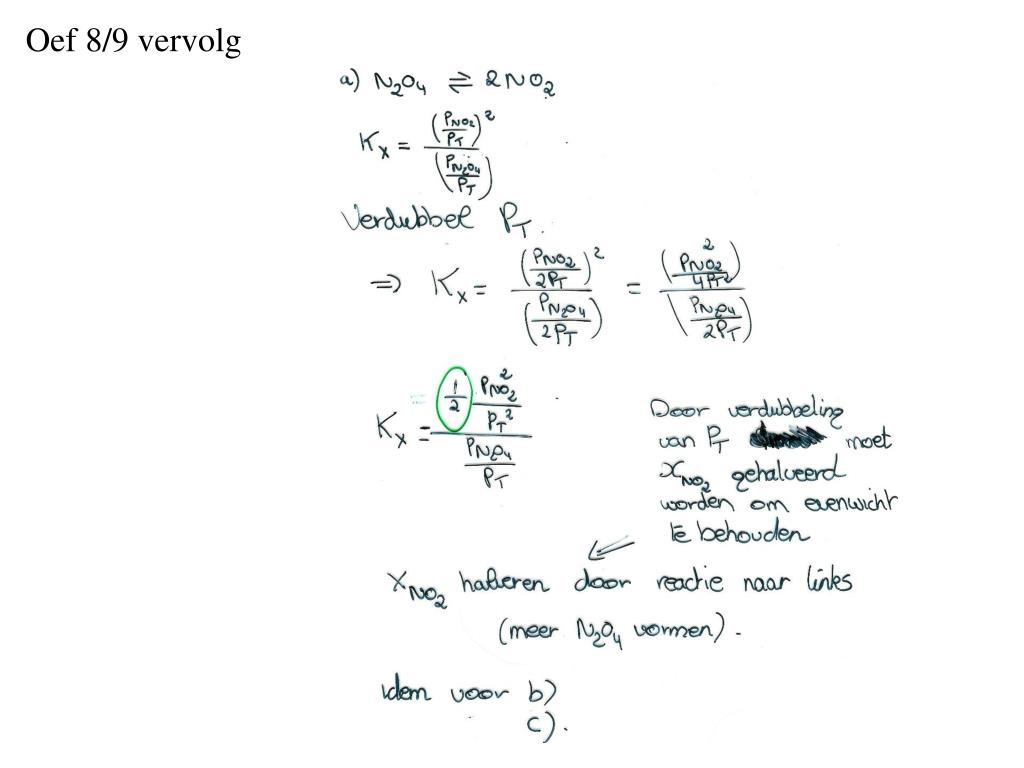 Oef 8/9 vervolg
a) N₂O₄ ⇌ 2NO₂
Kₓ = (P_NO₂/P_T)² / (P_N₂O₄/P_T)
Verdubbel P_T.
⇒ Kₓ = (P_NO₂/2P_T)² / (P_N₂O₄/2P_T) = (P_NO₂²/4P_T²) / (P_N₂O₄/2P_T)
Kₓ = = (1/2 P_NO₂²/P_T²) / (P_N₂O₄/P_T)
Door verdubbeling
van P_T moet
x_NO₂ gehalveerd
worden om evenwicht
te behouden
x_NO₂ halveren door reactie naar links
(meer N₂O₄ vormen).
idem voor b)
c).